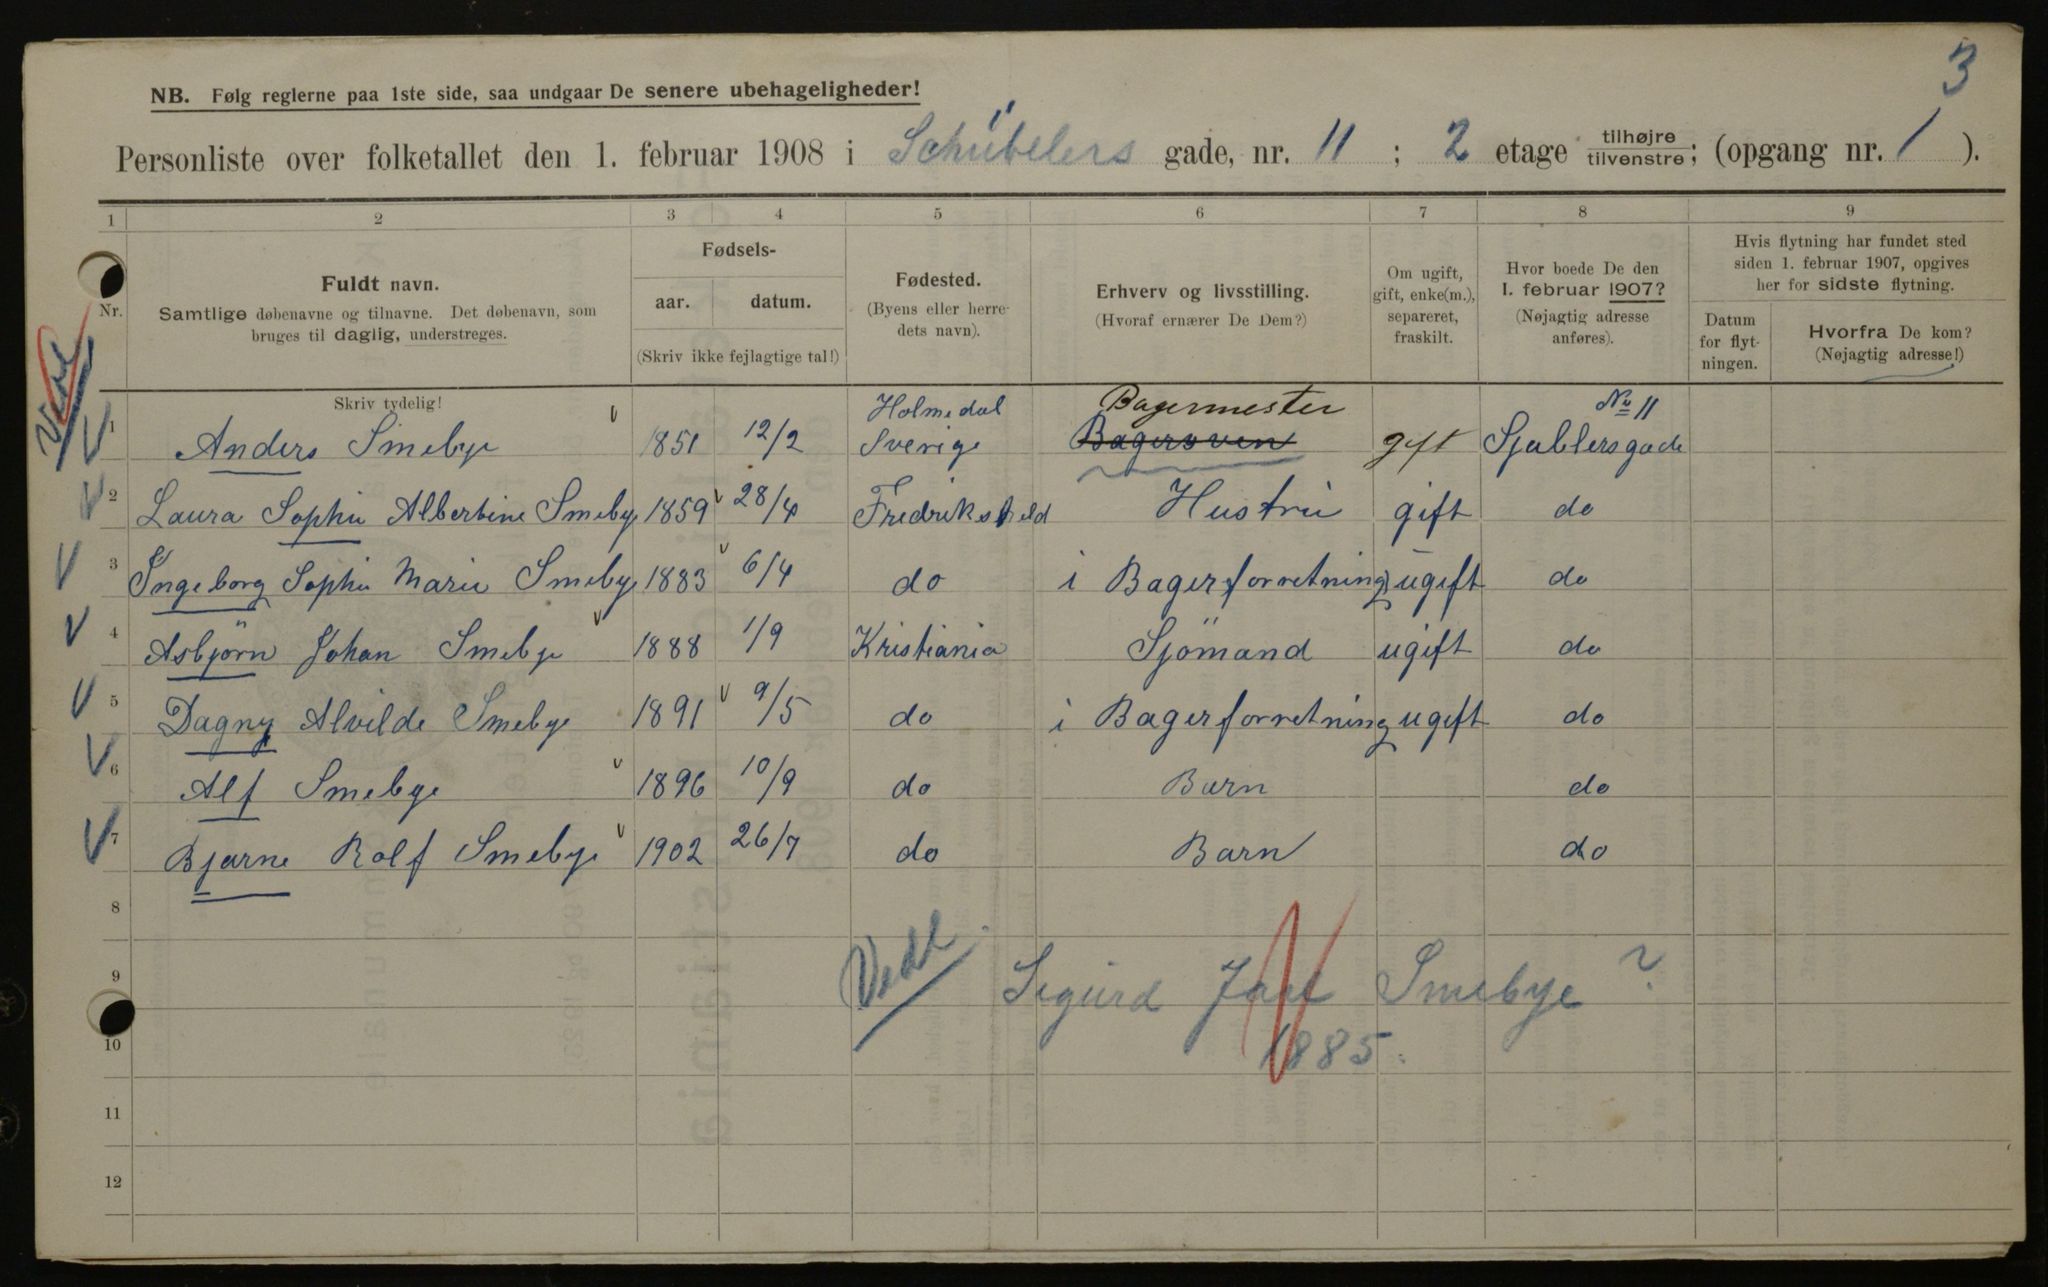 3
NB. Følg reglerne paa 1ste side, saa undgaar De senere ubehageligheder!
Personliste over folketallet den 1. februar 1908 i Schübelers gade, nr. 11 ; 2 etage tilhøjre tilvenstre; (opgang nr. 1 ).
1 2 3 4 5 6 7 8 9
Nr.
Fuldt navn.
Samtlige døbenavne og tilnavne. Det døbenavn, som
bruges til daglig, understreges.
Fødsels-
aar. datum.
(Skriv ikke fejlagtige tal!)
Fødested.
(Byens eller herre-
dets navn).
Erhverv og livsstilling.
(Hvoraf ernærer De Dem?)
Om ugift,
gift, enke(m.),
separeret,
fraskilt.
Hvor boede De den
1. februar 1907?
(Nøjagtig adresse
anføres).
Hvis flytning har fundet sted
siden 1. februar 1907, opgives
her for sidste flytning.
Datum
for flyt-
ningen.
Hvorfra De kom?
(Nøjagtig adresse!)
Skriv tydelig!
Holmedal Bagermester No 11
1 Anders Smebye 1851 12/2 Sverige Bagersven gift Sjublersgade
2 Laura Sophie Albertine Smebye 1859 28/4 Fredrikshald Hustru gift do
3 Ingeborg Sophie Marie Smebye 1883 6/4 do i Bagerforretning ugift do
4 Asbjörn Johan Smebye 1888 1/9 Kristiania Sjömand ugift do
5 Dagny Alvilde Smebye 1891 9/5 do i Bagerforretning ugift do
6 Alf Smebye 1896 10/9 do Barn do
7 Bjarne Rolf Smebye 1902 26/7 do Barn do
8
9 Sigurd Smebye ?
10 1885.
11
12